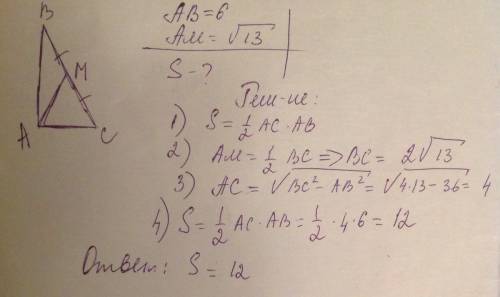 B
M
A
C
AB = 6
AM = √13
S - ?
Реш-ие:
1) S = 1/2 AC · AB
2) AM = 1/2 BC => BC = 2√13
3) AC = √(BC² - AB²) = √(4·13 - 36) = 4
4) S = 1/2 AC · AB = 1/2 · 4 · 6 = 12
Ответ: S = 12